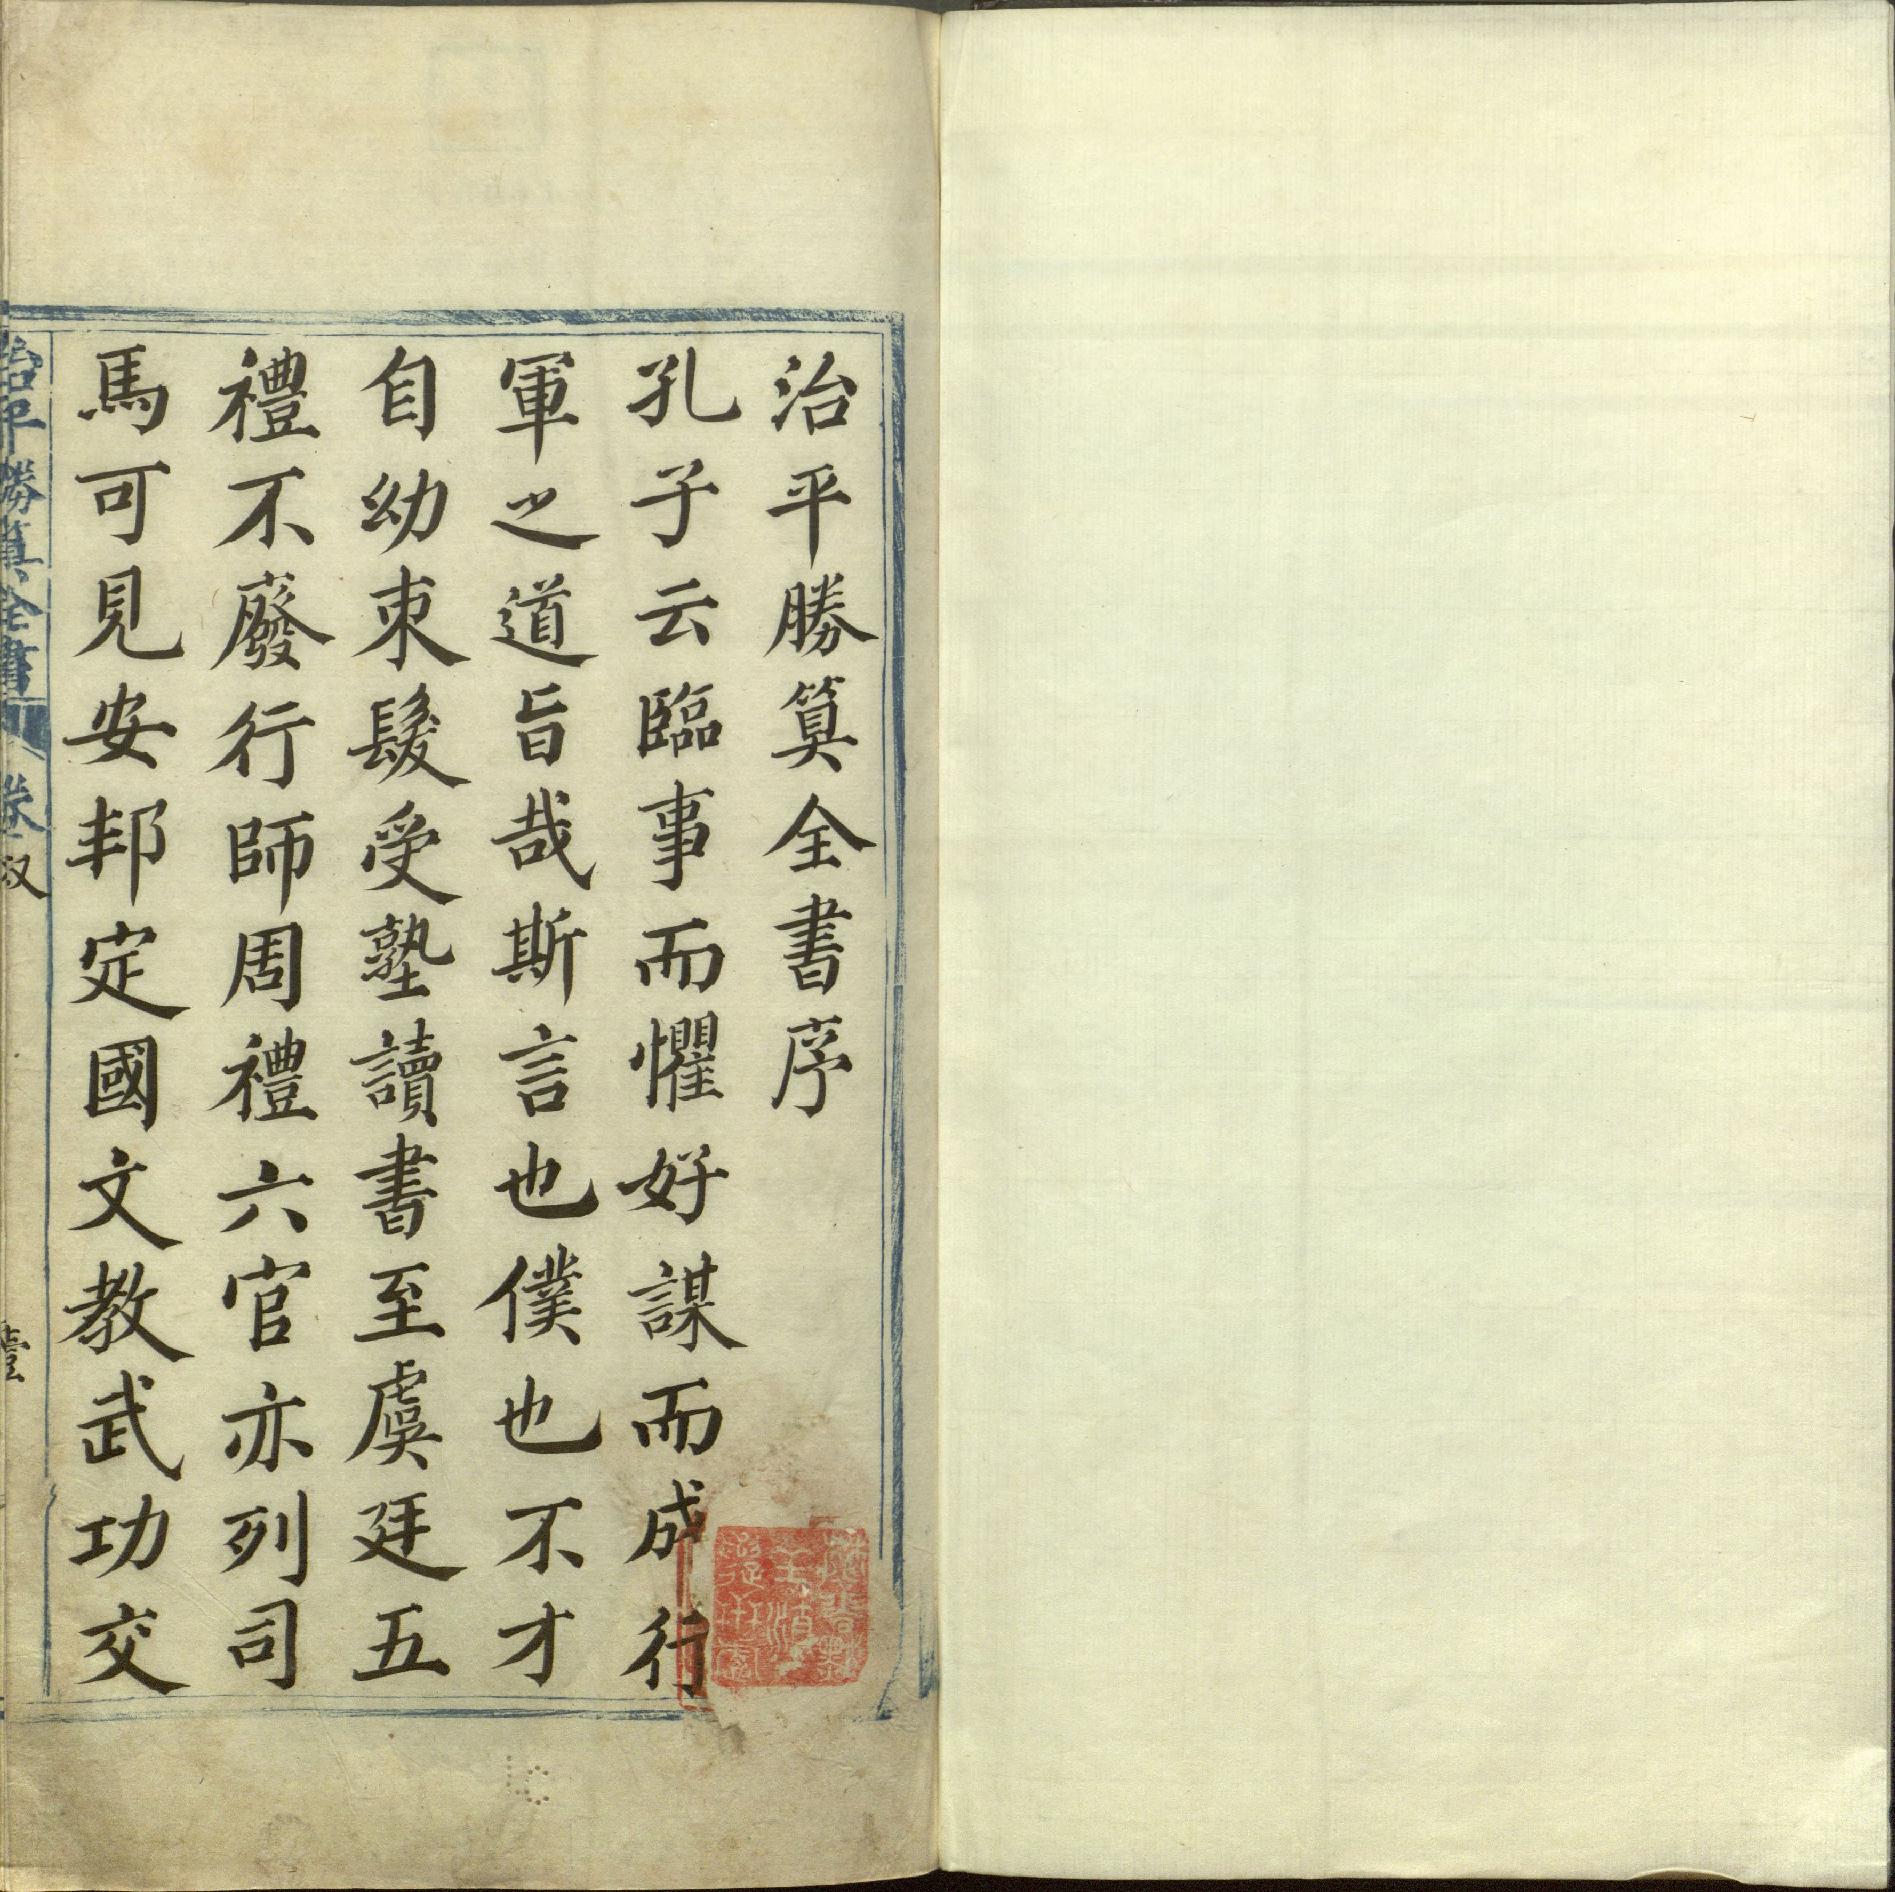 治平勝算全書序
孔子云臨事而懼好謀而成行
軍之道旨哉斯言也僕也不才
自幼束髮受塾讀書至虞廷五
禮不廢行師周禮六官亦列司
馬可見安邦定國文教武功交
治平勝算全書 卷 叙 壹